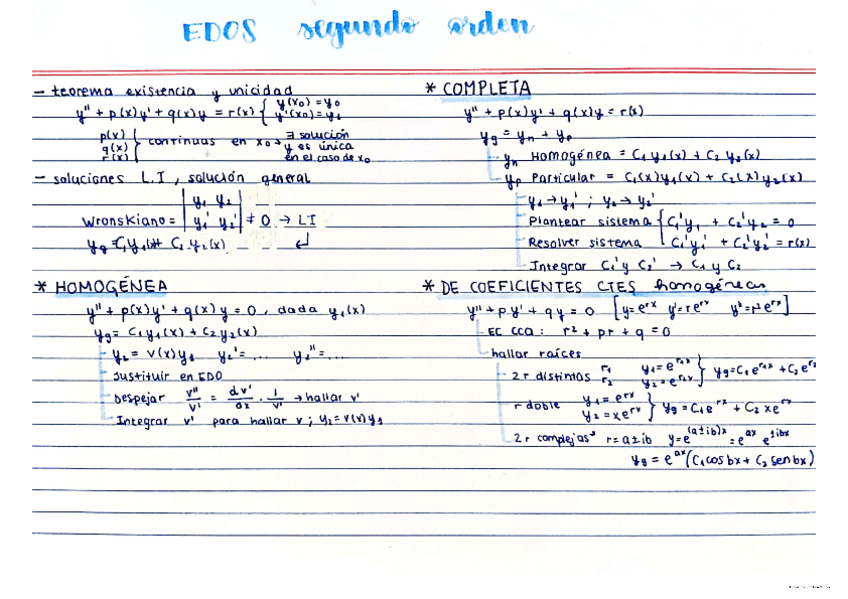 EDOS segundo orden
- teorema existencia y unicidad
y'' + p(x)y' + q(x)y = r(x) { y(x₀) = y₀
y'(x₀) = y₁
p(x)
q(x)
r(x) } continuas en x₀ → ∃ solución
y es única
en el caso de x₀
- soluciones L.I, solución general
Wronskiano = | y₁ y₂
y₁' y₂' | ≠ 0 → LI
yg = C₁y₁(x)+ C₂ y₂(x)
* HOMOGÉNEA
y'' + p(x)y' + q(x)y = 0, dada y₁(x)
yg = C₁y₁(x) + C₂y₂(x)
y₂ = v(x)y₁ y₂' = ... y₂'' = ...
Sustituir en EDO
Despejar v''/v' = dv'/dx · 1/v' → hallar v'
Integrar v' para hallar v ; y₂ = v(x)y₁
* COMPLETA
y'' + p(x)y' + q(x)y = r(s)
yg = yn + yp
yn Homogénea = C₁ y₁(x) + C₂ y₂(x)
yp Particular = C₁(x)y₁(x) + C₂(x)y₂(x)
y₁ → y₁' ; y₂ → y₂'
Plantear sistema { C₁'y₁ + C₂'y₂ = 0
Resolver sistema C₁'y₁' + C₂'y₂' = r(x)
Integrar C₁' y C₂' → C₁ y C₂
* DE COEFICIENTES CTES homogéneas
y'' + py' + qy = 0 [y=e^rx y'=re^rx y''=r²e^rx]
EC CCA: r² + pr + q = 0
hallar raíces
2 r distimas r₁ y₁ = e^r₁x
r₂ y₂ = e^r₂x } yg = C₁e^r₁x + C₂e^r₂
r doble y₁ = e^rx
y₂ = xe^rx } yg = C₁e^rx + C₂ xe^rx
2 r complejas r = a±ib y = e^(a±ib)x = e^ax e^±ibx
yg = e^ax (C₁cos bx + C₂ sen bx)